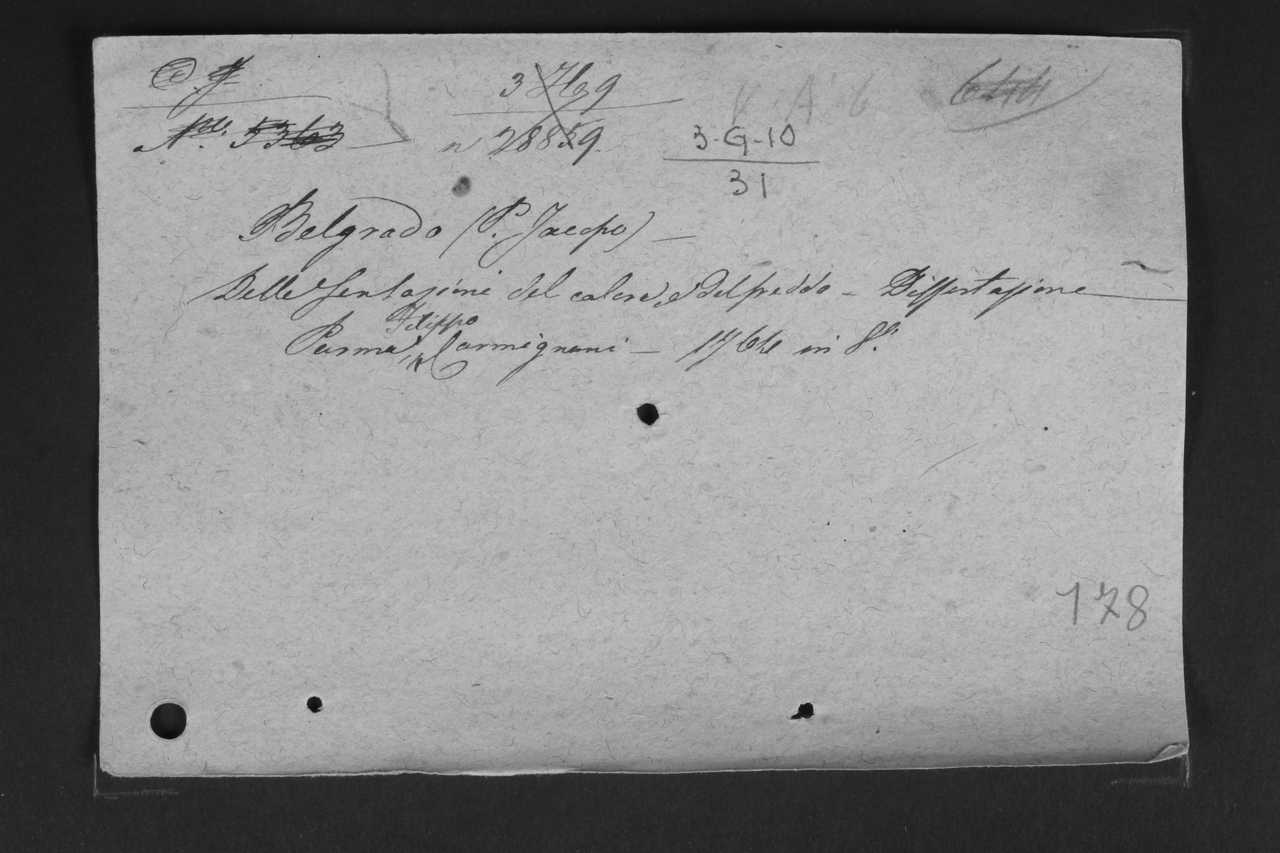 3 H 9
644
Nu. 5363
n 28859
3-G-10
31
Belgrado (P. Jacopo) —
Delle Sensazioni del calore, e del freddo — Dissertazione
Filippo
Parma, Carmignani — 1764 in 8.°
178